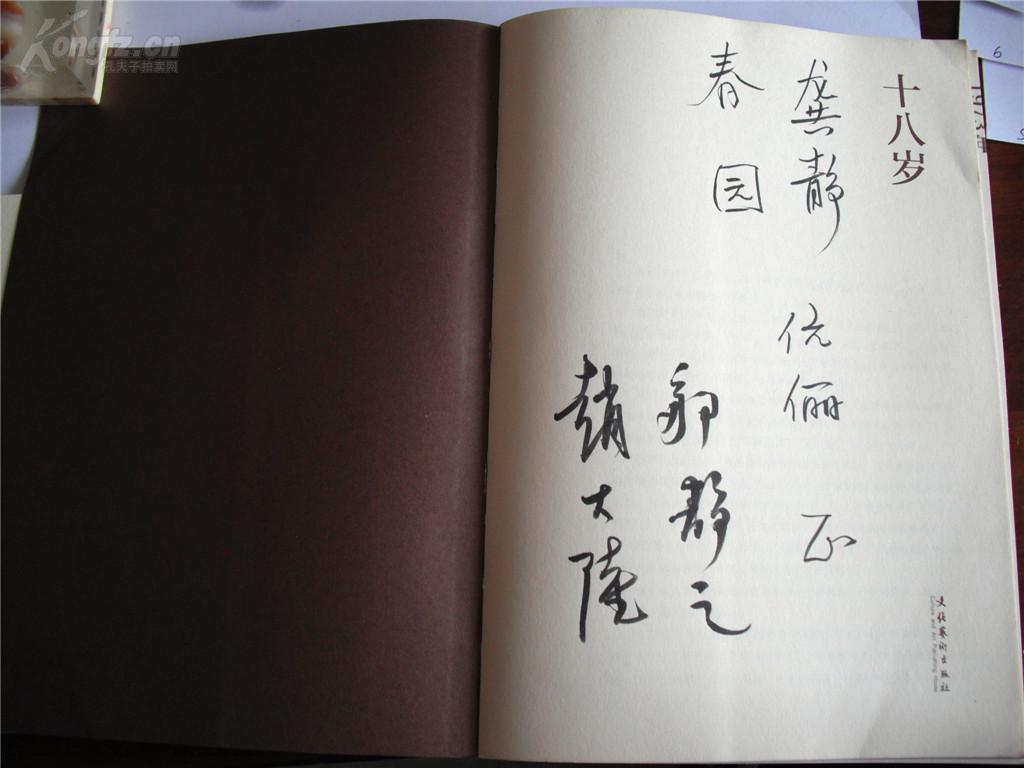 Kongfz.cn
孔夫子拍卖网
6
十八岁
龚静 伉俪 正
春园
郭静之
趙大陸
文化藝術出版社
Culture and Art Publishing House